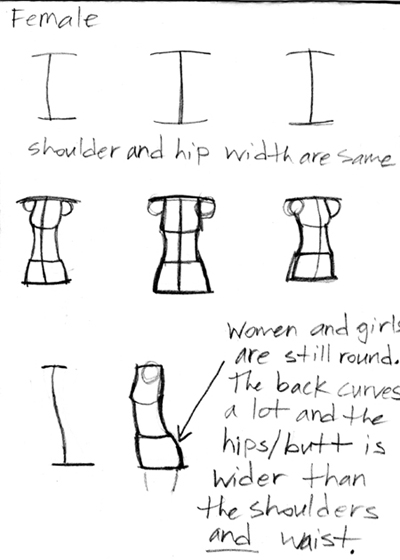 Female
shoulder and hip width are same
Women and girls
are still round.
The back curves
a lot and the
hips/butt is
wider than
the shoulders
and waist.